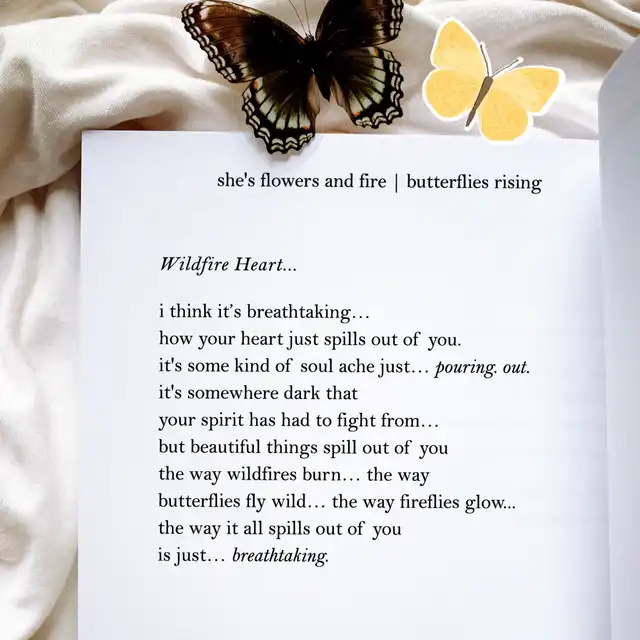 she's flowers and fire | butterflies rising
Wildfire Heart...
i think it's breathtaking...
how your heart just spills out of you.
it's some kind of soul ache just... pouring. out.
it's somewhere dark that
your spirit has had to fight from...
but beautiful things spill out of you
the way wildfires burn... the way
butterflies fly wild... the way fireflies glow...
the way it all spills out of you
is just... breathtaking.